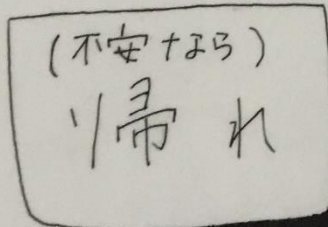 (不安なら)
帰れ